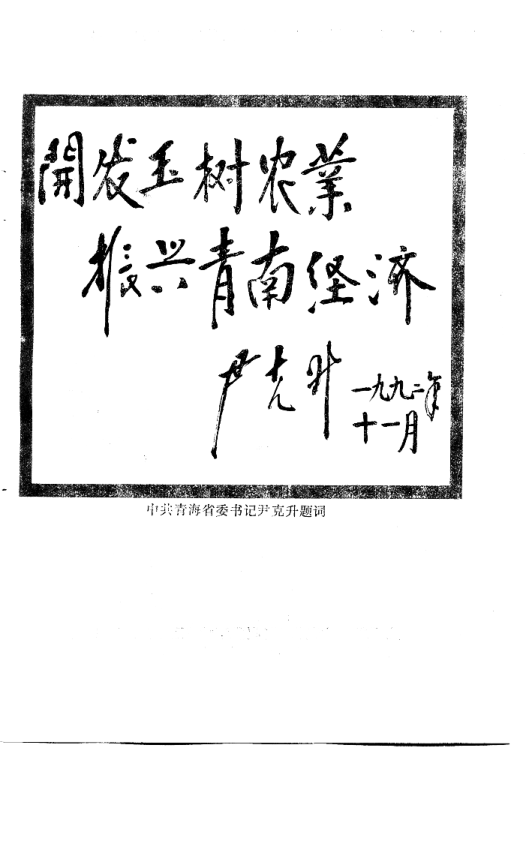 開发玉树农業
振兴青南经济
尹克升
一九九二年
十一月
中共青海省委书记尹克升题词